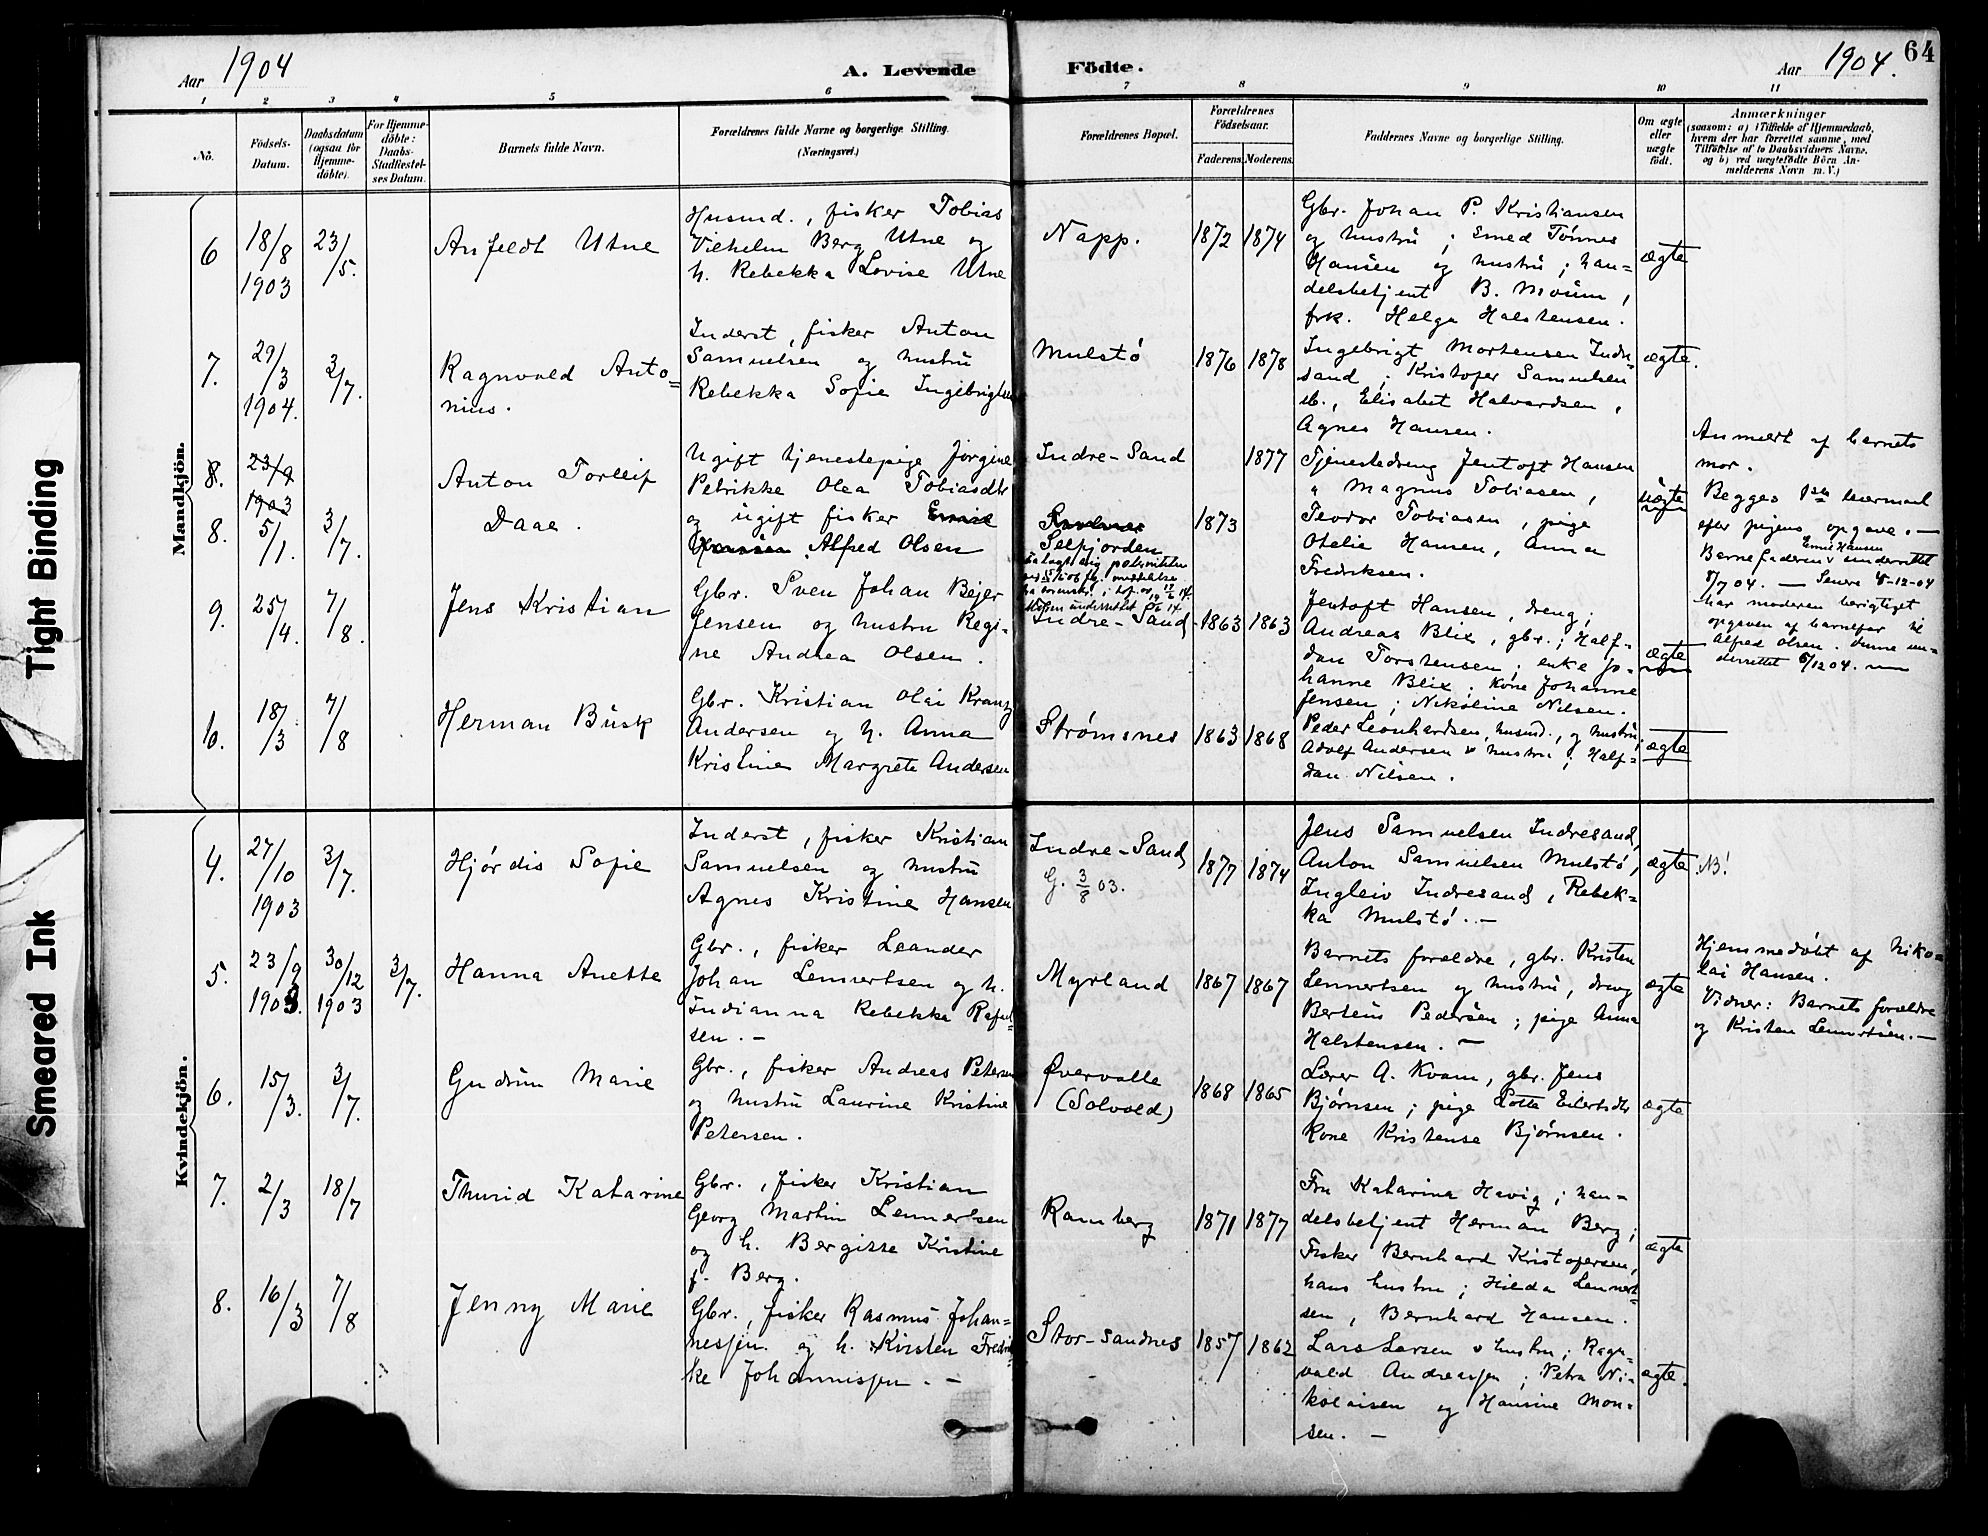 64
Aar 1904
A. Levende Födte.
Aar 1904.
1 2 3 4 5 6 7 8 9 10 11
No.
Födsels-
Datum.
Daabsdatum
(ogsaa for
Hjemme-
döbte).
For Hjemme-
döbte:
Daabs-
Stadfæstel-
ses Datum.
Barnets fulde Navn.
Forældrenes fulde Navne og borgerlige Stilling.
(Næringsvei.)
Forældrenes Bopæl.
Forældrenes
Födselsaar.
Faderens. Moderens.
Faddernes Navne og borgerlige Stilling.
Om ægte
eller
uægte
født.
Anmærkninger
(saasom: a) i Tilfælde af Hjemmedaab,
hvem der har forrettet samme, med
Tilföielse af to Daabsvidners Navne.
og b) ved uægtefödte Börn An-
melderens Navn m. V.)
Mandkjön.
6
18/8
1903
23/5.
Anfeldt Utne
Husmd., fisker Tobias
Vilhelm Berg Utne og
h. Rebekka Lovise Utne
Napp.
1872 1874
Gbr. Johan P. Kristiansen
og hustru; smed Tønnes
Hansen og hustru; han=
delsbetjent B. Moum,
frk. Helga Halstensen.
ægte
7.
29/3
1904.
3/7.
Ragnvald Anto=
nius.
Inderst, fisker Anton
Samuelsen og hustru
Rebekka Sofie Ingebrigtsen
Mulstø
1876 1878
Ingebrigt Mortensen Indre
sand, Kristofer Samuelsen
sb., Elisabet Halvardsen,
Agnes Hansen.
ægte.
8.
23/9
1903
8.
5/1.
3/7.
Anton Torleif
Daae.
Ugift tjenestepige Jørgine
Petrikke Olea Tobiasdtr
og ugift fisker Emil
Hansen Alfred Olsen
Indre-Sand
Sandnes
Selfjorden
1873
1877
Tjenestedreng Jentoft Hansen
" Magnus Tobiasen,
Teodor Tobiasen, pige
Otelie Hansen, Anna
Fredriksen.
uægte
Anmeldt af barnets
mor.
Begges 1ste leiermaal
efter pigens opgave. —
Barnefaderen Emil Hansen underrettet
8/7 04. — Senere 5-12-04
har moderen berigtiget
opgaven af barnefar til
Alfred Olsen. Denne un=
derrettet 6/12 04.
9.
25/4.
7/8.
Jens Kristian
Gbr. Sven Johan Bejer
Jensen og hustru Regi-
ne Andrea Olsen.
Indre-Sand
1863 1863
Jentoft Hansen, dreng;
Andreas Blix, gbr.; Half-
dan Torstensen; enke Jo-
hanne Blix; kone Johanne
Jensen; Nikoline Nilsen.
ægte
10.
18/3
7/8
Herman Busk
Gbr. Kristian Olai Krantz
Andersen og h. Anna
Kristine Margrete Andersen
Strømsnes
1863 1868
Peder Leonhardsen, husmd., og hustru;
Adolf Andersen & hustru; Half=
dan Nilsen.
ægte
Kvindekjön.
4.
27/10
1903
3/7.
Hjørdis Sofie
Inderst, fisker Kristian
Samuelsen og hustru
Agnes Kristine Hansen
Indre-Sand
G. 3/8 03.
1877 1874
Jens Samuelsen Indresand,
Anton Samuelsen Mulstø,
Ingleiv Indresand, Rebek-
ka Mulstø. —
ægte
NB!
5.
23/9
1903.
30/12
1903
3/7.
Hanna Anette
Gbr., fisker Leander
Johan Lennertsen og h.
Indianna Rebekka Rafael
sen. —
Myrland
1867 1867
Barnets forældre, gbr. Kristen
Lennertsen og hustru, dreng
Berteus Pedersen; pige Anna
Halstensen. —
ægte
Hjemmedøbt af Niko=
lai Hansen.
Vidner: Barnets forældre
og Kristen Lennertsen. —
6.
15/3.
3/7.
Gudrun Marie
Gbr., fisker Andreas Petersen
og hustru Laurine Kristine
Petersen.
Øvervolle
(Solvold)
1868 1865
Lærer A. Kvam, gbr. Jens
Bjørnsen; pige Lotte Eilertsdtr
kone Kristense Bjørnsen.
ægte
7.
2/3
18/7
Thurid Katarine
Gbr., fisker Kristian
Georg Martin Lennertsen
og h. Bergitte Kristine
f. Berg.
Ramberg
1871 1877
Fru Katarina Havig; han=
delsbetjent Herman Berg;
Fisker Bernhard Kristofersen,
hans hustru; Hilda Lennert-
sen, Bernhard Hansen.
ægte
8.
16/3
7/8
Jenny Marie
Gbr., fisker Rasmus Johan=
nessen og h. Kirsten Fredrik
ke Johannissen. —
Stor-Sandnes
1857 1862
Lars Larsen & hustru; Ragn-
vald Andreassen; Petra Ni-
kolaisen og Hansine Mon-
sen. —
ægte.
Tight Binding
Smeared Ink